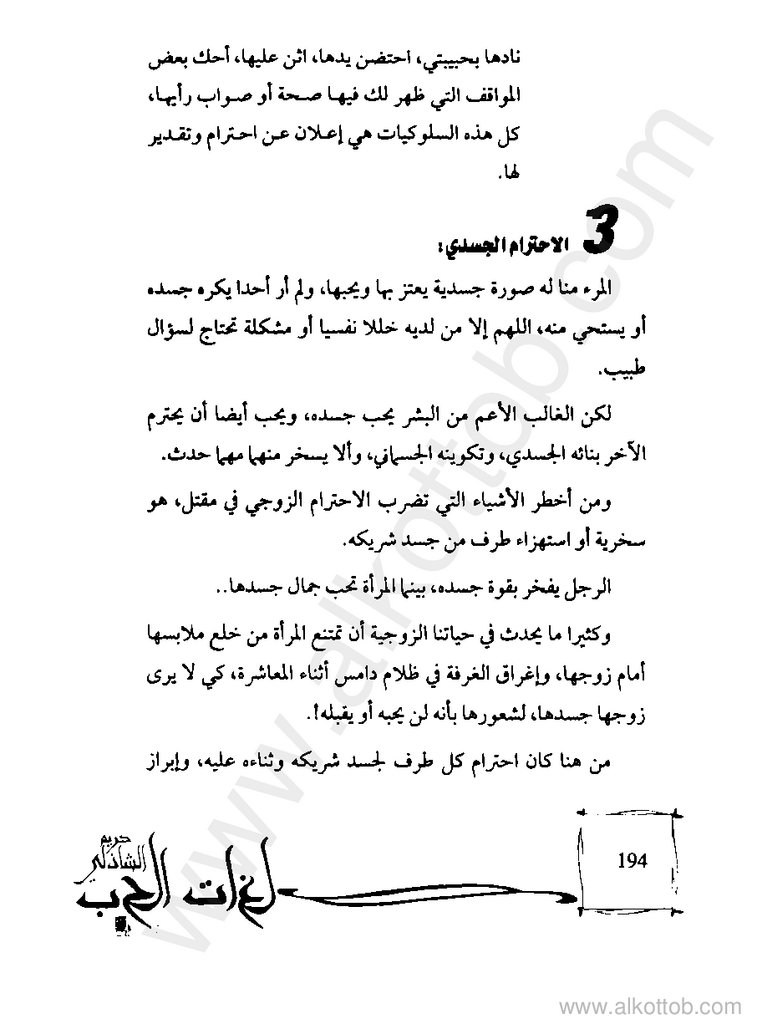 نادها بحبيبتي، احتضن يدها، اثن عليها، أحك بعض
المواقف التي ظهر لك فيها صحة أو صواب رأيها،
كل هذه السلوكيات هي إعلان عن احترام وتقدير
لها.
3 الاحترام الجسدي:
المرء منا له صورة جسدية يعتز بها ويحبها، ولم أر أحدا يكره جسده
أو يستحي منه، اللهم إلا من لديه خللا نفسيا أو مشكلة تحتاج لسؤال
طبيب.
لكن الغالب الأعم من البشر يحب جسده، ويحب أيضا أن يحترم
الآخر بنائه الجسدي، وتكوينه الجسماني، وألا يسخر منهما مهما حدث.
ومن أخطر الأشياء التي تضرب الاحترام الزوجي في مقتل، هو
سخرية أو استهزاء طرف من جسد شريكه.
الرجل يفخر بقوة جسده، بينما المرأة تحب جمال جسدها..
وكثيرا ما يحدث في حياتنا الزوجية أن تمتنع المرأة من خلع ملابسها
أمام زوجها، وإغراق الغرفة في ظلام دامس أثناء المعاشرة، كي لا يرى
زوجها جسدها، لشعورها بأنه لن يحبه أو يقبله!.
من هنا كان احترام كل طرف لجسد شريكه وثناءه عليه، وإبراز
194
كريم
الشاذلي
لغات الحب
www.alkottob.com
www.alkottob.com